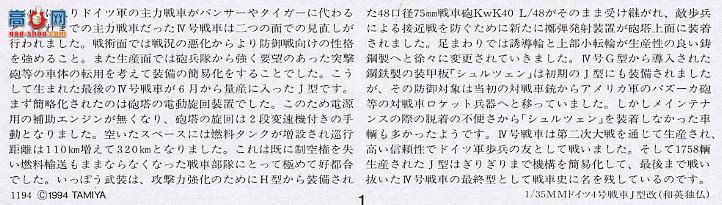 によりドイツ軍の主力戦車がパンサーやタイガーに代わる
での主力戦車だったⅣ号戦車は二つの面での見直しが
行われました。戦術面では戦況の悪化からより防御戦向けの性格
を強めること。また生産面では砲兵隊から強く要望のあった突撃
砲等の車体の転用を考えて装備の簡易化をすることでした。こう
して生まれた最後のⅣ号戦車が6月から量産に入ったJ型です。
まず簡略化されたのは砲塔の電動旋回装置でした。このため電源
用の補助エンジンが無くなり、砲塔の旋回は2段変速機付きの手
動となりました。空いたスペースには燃料タンクが増設され巡行
距離は110km増えて320kmとなりました。これは既に制空権を失
い燃料輸送もままならなくなった戦車部隊にとって極めて好都合
でした。いっぽう武装は、攻撃力強化のためにH型から装備され
た48口径75mm戦車砲KwK40 L/48がそのまま受け継がれ、敵歩兵
による接近戦を防ぐために新たに擲弾発射装置が砲塔上面に装着
されました。足まわりでは誘導輪と上部小転輪が生産性の良い鋳
鋼製へと徐々に変更されていきました。Ⅳ号G型から導入された
鋼鉄製の装甲板「シュルツェン」は初期のJ型にも装備されました
が、その防御対象は当初の対戦車銃からアメリカ軍のバズーカ砲
等の対戦車ロケット兵器へと移っていました。しかしメインテナ
ンスの際の脱着の不便さから「シュルツェン」を装着しなかった車
輌も多かったようです。Ⅳ号戦車は第二次大戦を通じて生産され、
高い信頼性でドイツ軍歩兵の友として戦いました。そして1758輌
生産されたJ型はぎりぎりまで機構を簡易化して、最後まで戦い
抜いたⅣ号戦車の最終型として戦車史に名を残しているのです。
1194 ©1994 TAMIYA
1
1/35MMドイツ4号戦車J型改（和英独仏）